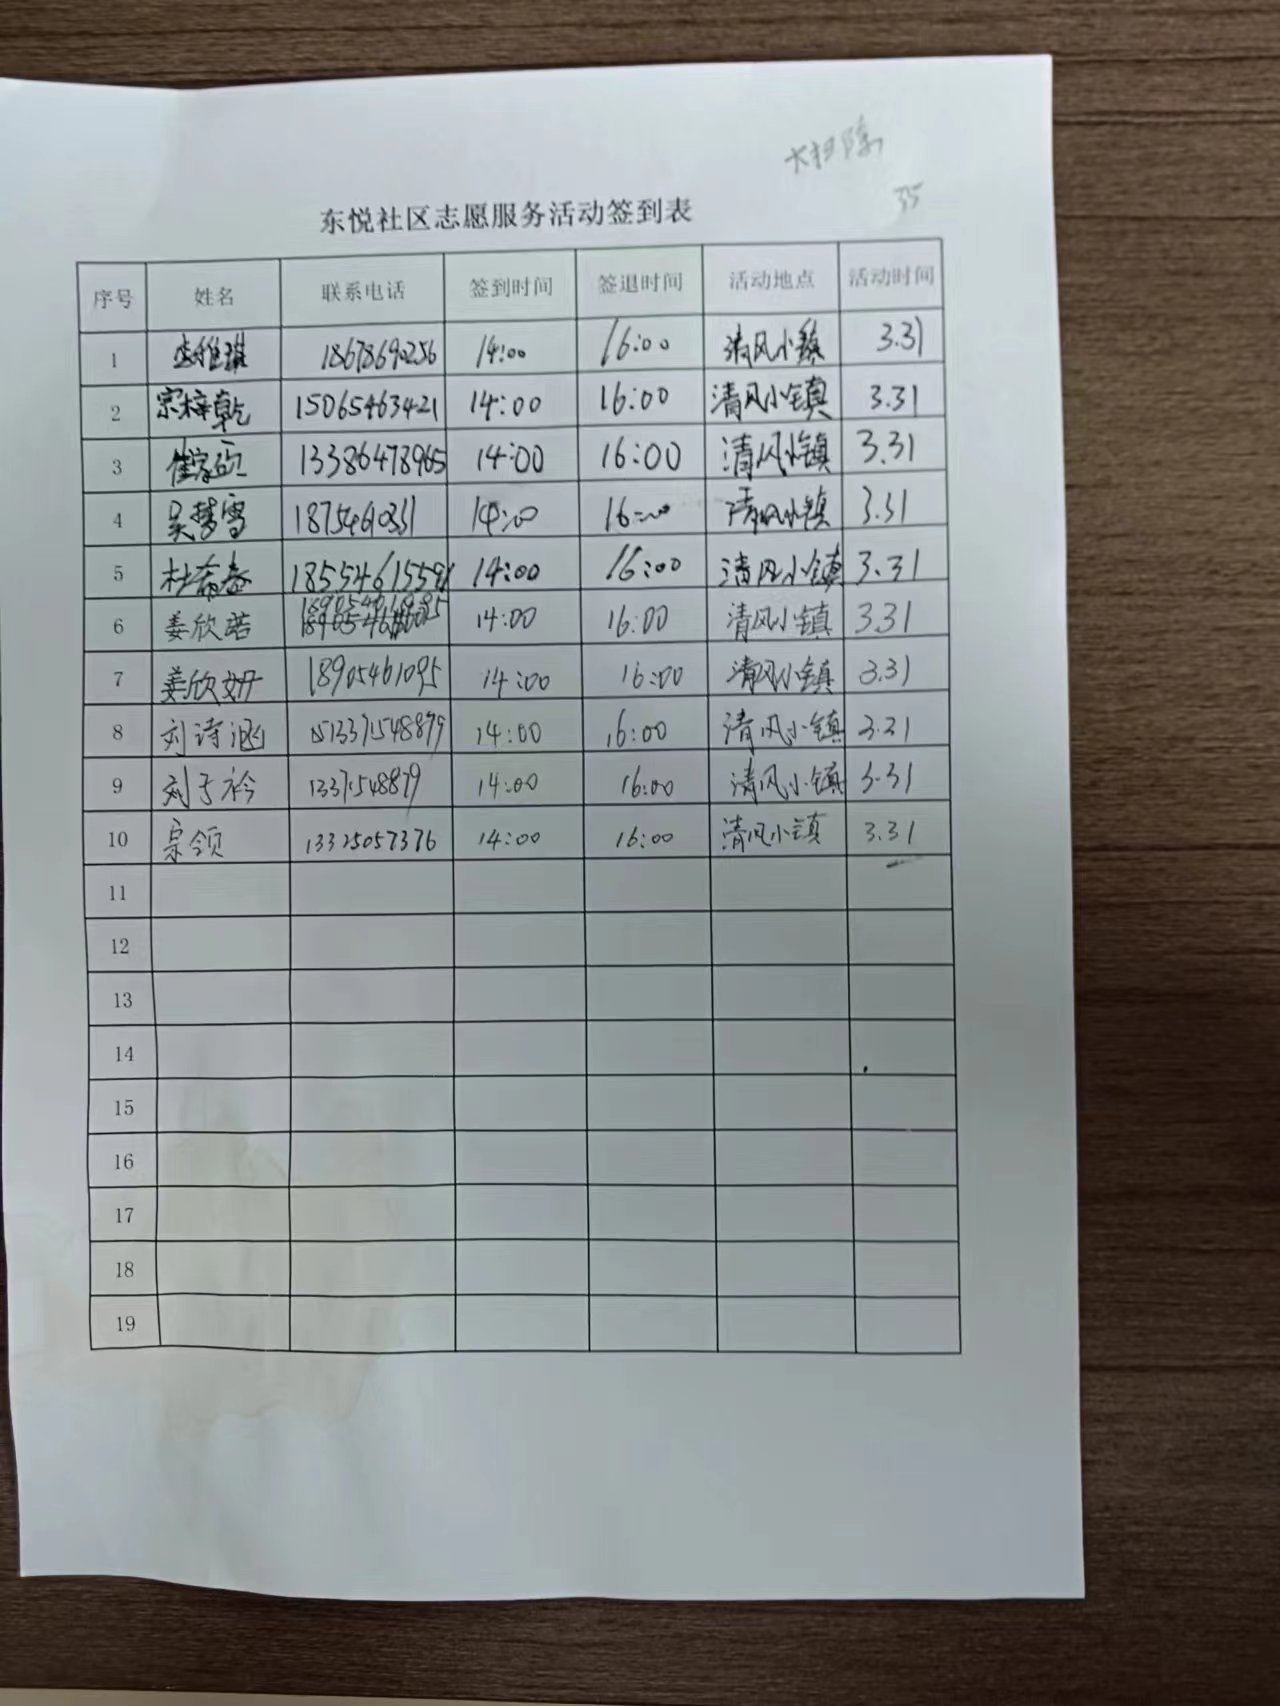 35
东悦社区志愿服务活动签到表
序号 姓名 联系电话 签到时间 签退时间 活动地点 活动时间
1 18678690256 14:00 16:00 清风小镇 3.31
2 宗梓乾 15065463421 14:00 16:00 清风小镇 3.31
3 崔家硕 13386478965 14:00 16:00 清风小镇 3.31
4 吴梦雪 18754610331 14:00 16:00 清风小镇 3.31
5 杜希春 14:00 16:00 清风小镇 3.31
6 姜欣诺 14:00 16:00 清风小镇 3.31
7 姜欣妍 18905461095 14:00 16:00 清风小镇 3.31
8 刘诗涵 14:00 16:00 清风小镇 3.31
9 刘子衿 13371548879 14:00 16:00 清风小镇 3.31
10 宗领 13325057376 14:00 16:00 清风小镇 3.31
11
12
13
14
15
16
17
18
19